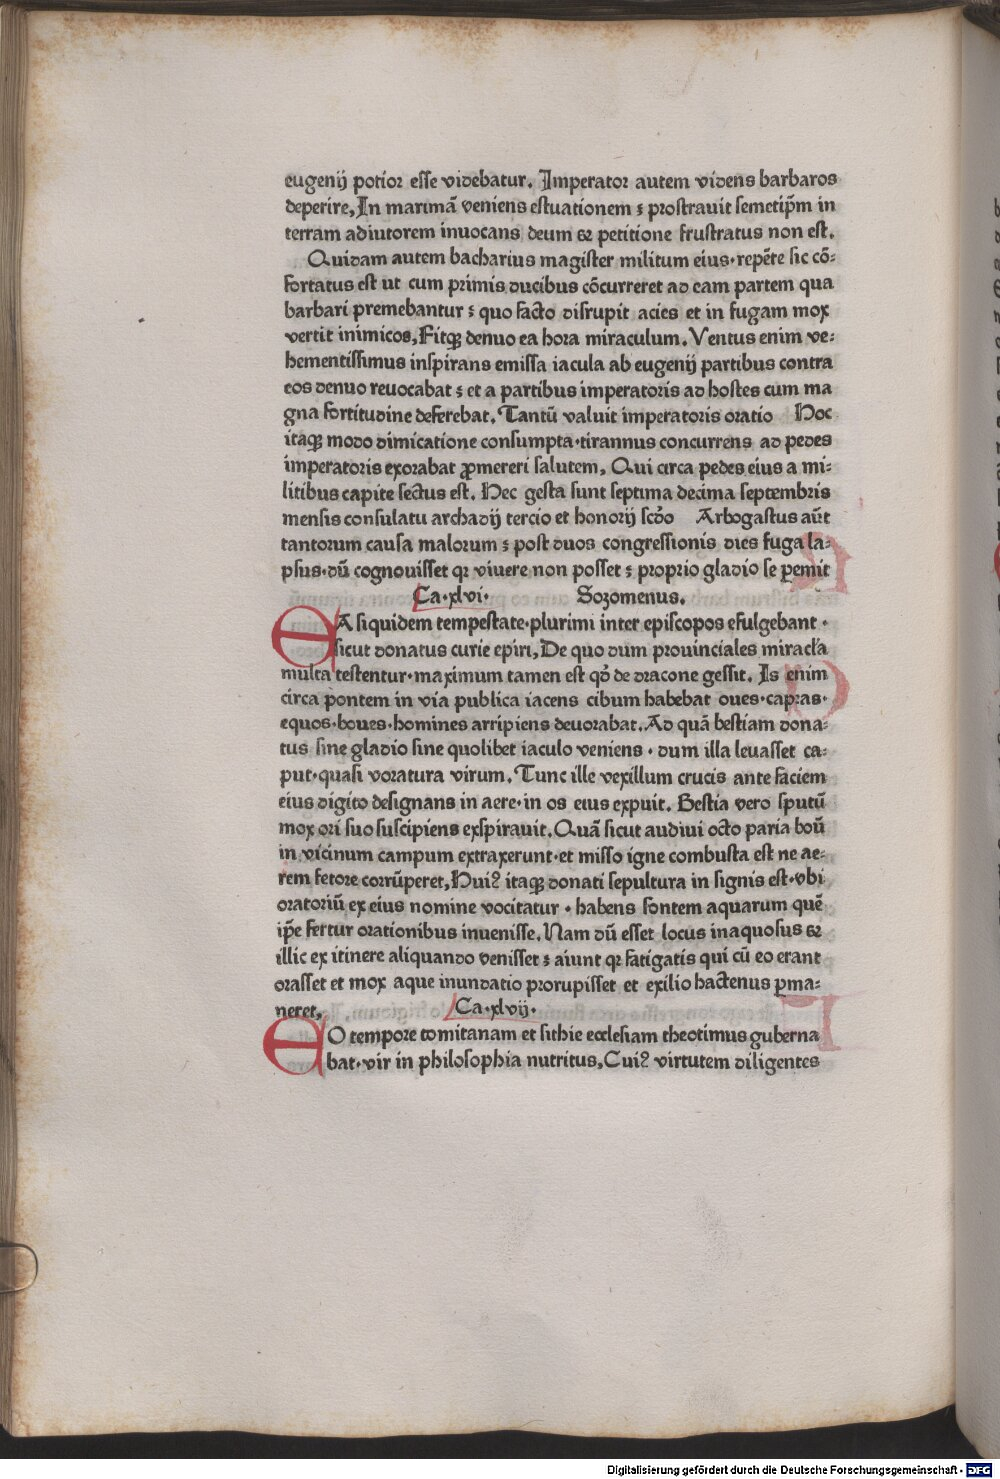 eugenij potior esse videbatur. Imperator autem videns barbaros
deperire, In marimā veniens estuationem ⁊ prostrauit semetip̄m in
terram adiutorem inuocans deum ⁊ petitione frustratus non est.
Quidam autem bacharius magister militum eius·repēte sic cō⸗
fortatus est ut cum primis ducibus cōcurreret ad eam partem qua
barbari premebantur ⁊ quo facto disrupit acies et in fugam mox
vertit inimicos, Fitqꝫ denuo ea hora miraculum. Ventus enim ve⸗
hementissimus inspirans emissa iacula ab eugenij partibus contra
eos denuo reuocabat ⁊ et a partibus imperatoris ad hostes cum ma
gna fortitudine deferebat. Tantū valuit imperatoris oratio Hoc
itaqꝫ modo dimicatione consumpta·tirannus concurrens ad pedes
imperatoris exorabat ꝓmereri salutem, Qui circa pedes eius a mi⸗
litibus capite sectus est. Hec gesta sunt septima decima septembris
mensis consulatu archadij tercio et honorij scd̄o Arbogastus aūt
tantorum causa malorum ⁊ post duos congressionis dies fuga la⸗
psus·dū cognouisset qꝛ viuere non posset ⁊ proprio gladio se ꝑemit
Ca·xlvi· Sozomenus.
EA siquidem tempestate·plurimi inter episcopos efulgebant·
sicut donatus curie epiri, De quo dum prouinciales miracl'a
multa testentur·maximum tamen est qd̄ de dracone gessit. Is enim
circa pontem in via publica iacens cibum habebat oues·capras·
equos·boues·homines arripiens deuorabat. Ad quā bestiam dona⸗
tus sine gladio sine quolibet iaculo veniens·dum illa leuasset ca⸗
put·quasi voratura virum. Tunc ille vexillum crucis ante faciem
eius digito designans in aere·in os eius expuit. Bestia vero sputū
mox ori suo suscipiens exspirauit. Quā sicut audiui octo paria boū
in vicinum campum extraxerunt·et misso igne combusta est ne ae⸗
rem fetore corrūperet, Huiꝰ itaqꝫ donati sepultura in signis est·vbi
oratoriū ex eius nomine vocitatur·habens fontem aquarum quē
ip̄e fertur orationibus inuenisse. Nam dū esset locus inaquosus ⁊
illic ex itinere aliquando venisset ⁊ aiunt qꝛ fatigatis qui cū eo erant
orasset et mox aque inundatio prorupisset et exilio hactenus ꝑma⸗
neret, Ca·xlvij·
EO tempore tomitanam et sithie ecclesiam theotimus guberna
bat·vir in philosophia nutritus, Cuiꝰ virtutem diligentes
Digitalisierung gefördert durch die Deutsche Forschungsgemeinschaft - DFG